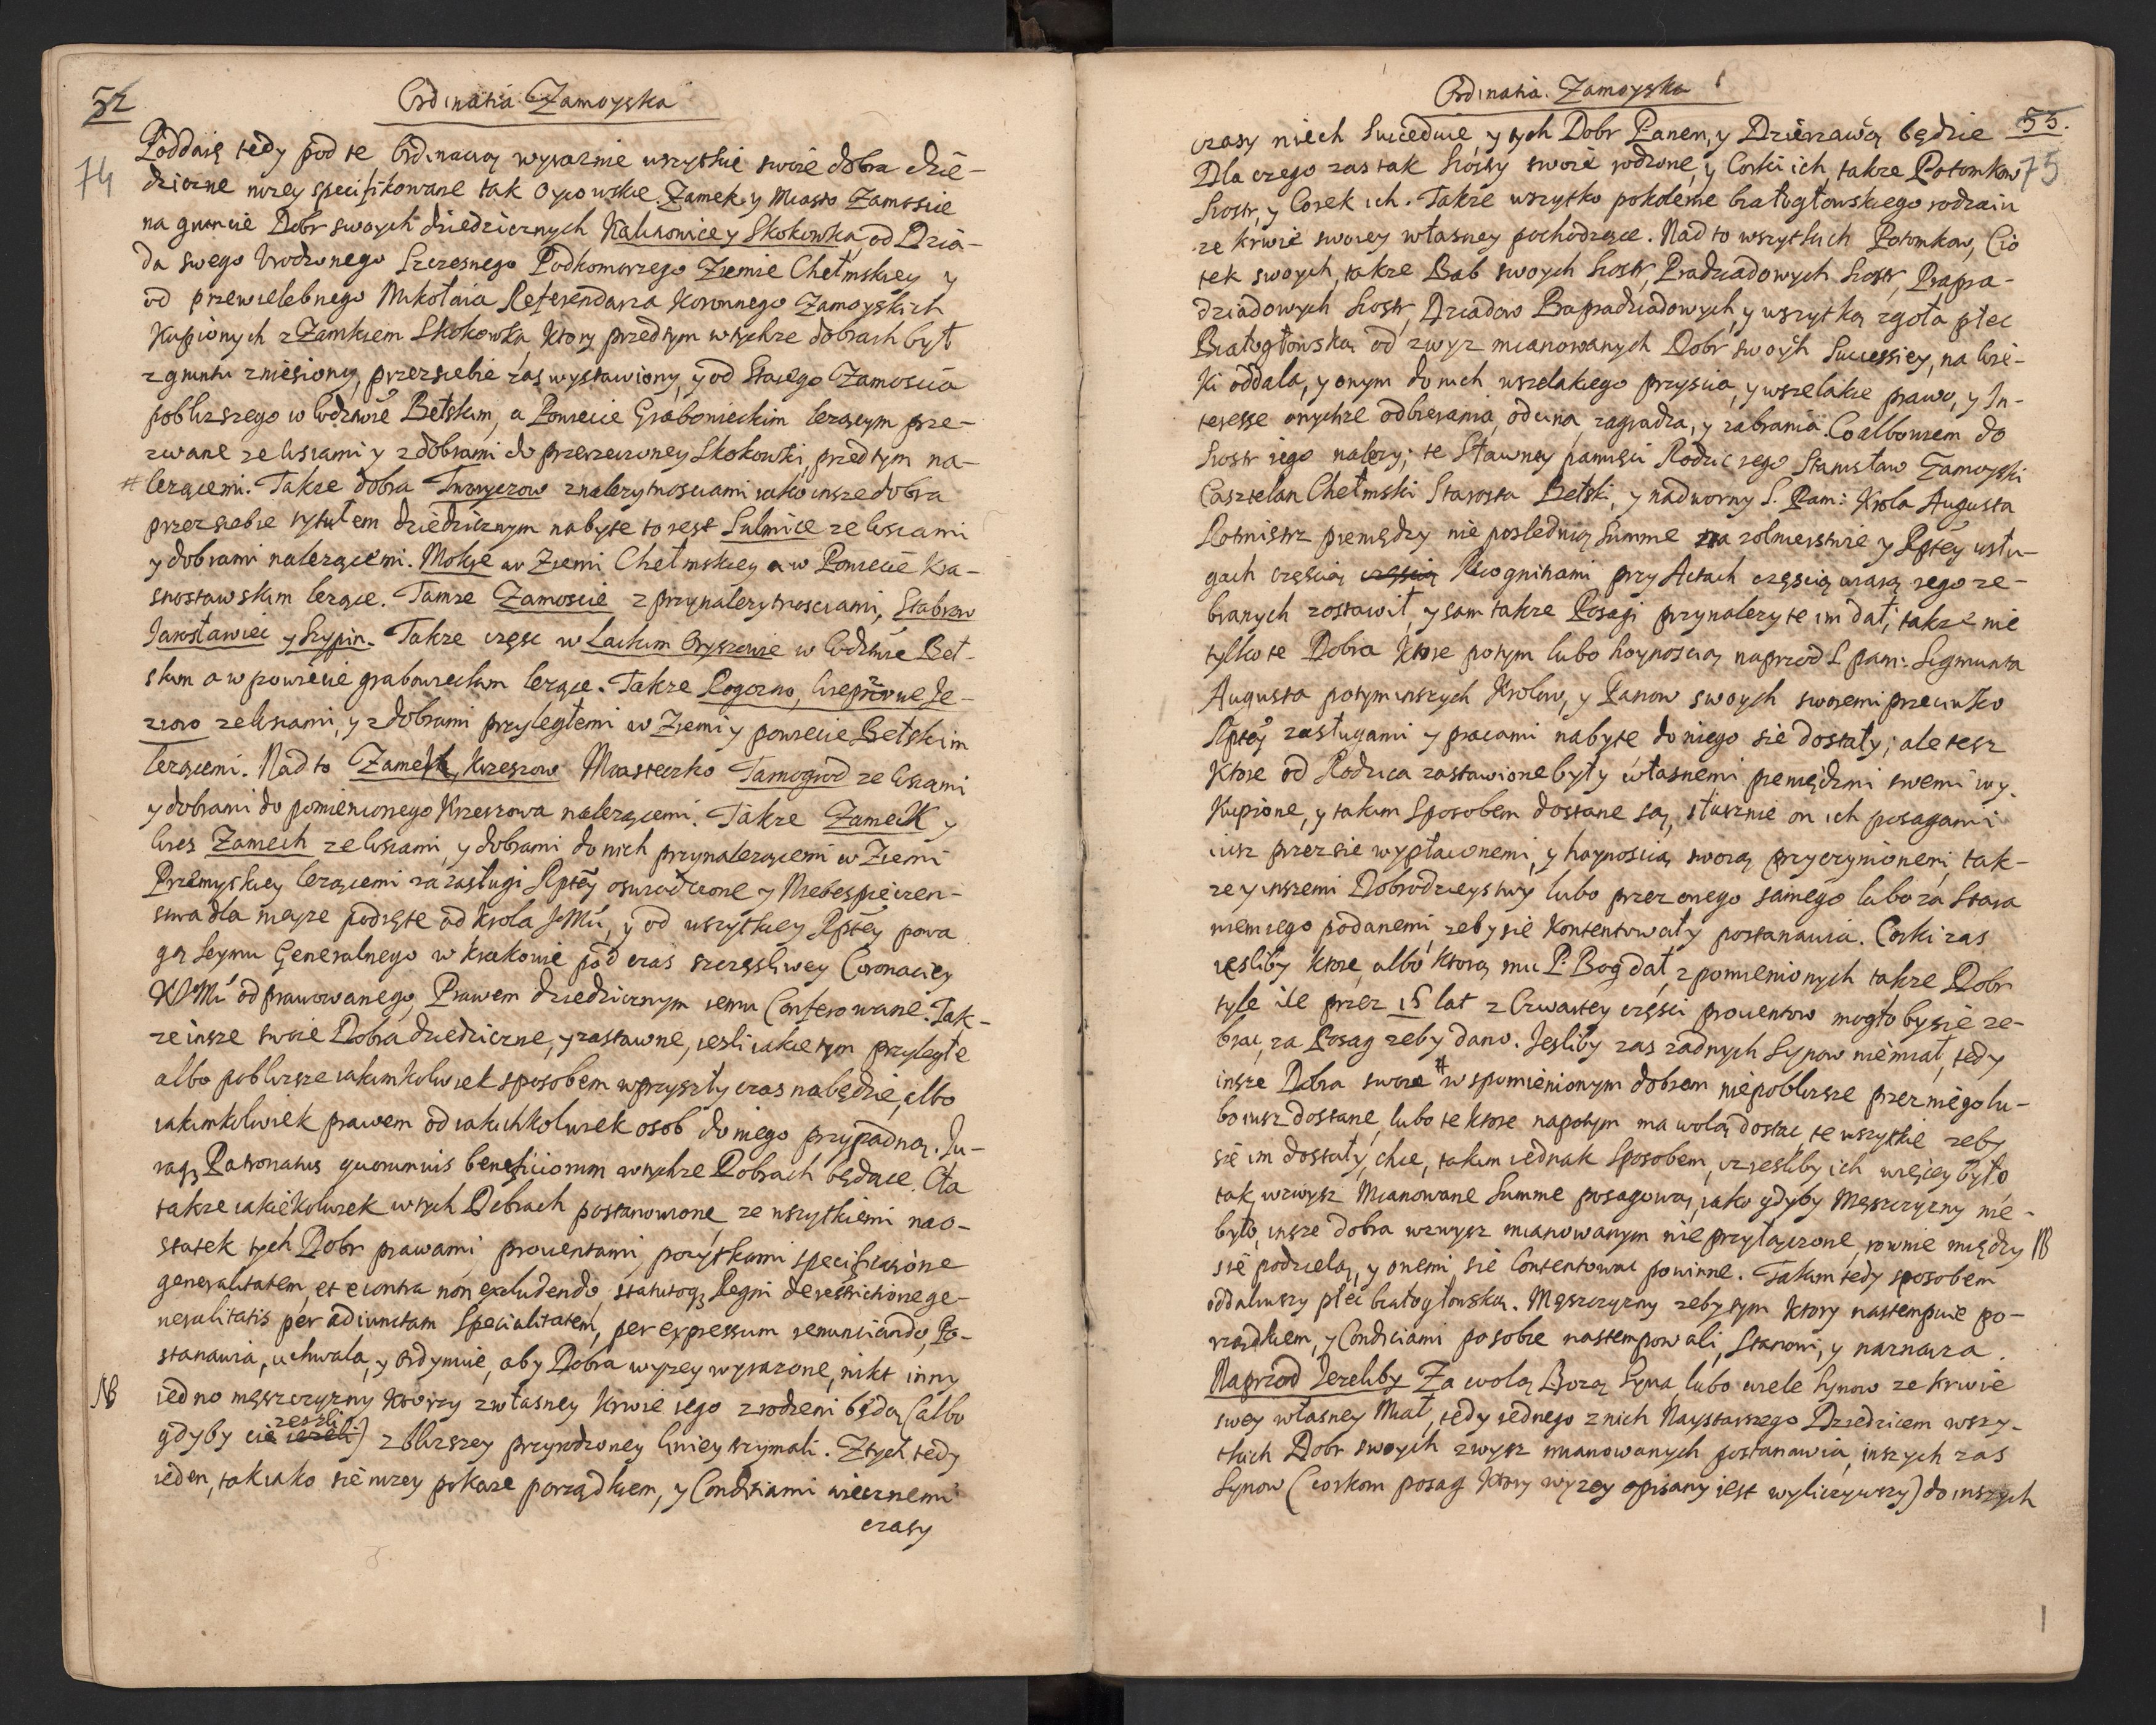 52
74
Ordinatia Zamoyska
Poddaię tedy pod te Ordinacią wyraznie wszystkie swoie dobra dzie-
dziczne nizey specifikowane tak Oycowskie. Zamek y Miasto Zamoscie
na gruncie Dobr swoych dziedzicznych Kalinowice y Skokowka, od Dzia-
da swego Urodzonego Szczesnego Podkomorzego Ziemie Chełmskiey y
od przewielebnego Mikołaia Referendarza Koronnego Zamoyskich
Kupionych z Zamkiem Skokowka, ktory przedtym w tychze dobrach był
z gruntu zniesiony, przez siebie zas wystawiony, y od Starego Zamoscia
poblizszego w Wodztwie Bełskim, a Powiecie Grabowieckim lezącym prze-
zwane ze Wsiami y z dobrami do przerzeczoney Skokowki, przedtym na-
# lezącemi. Takze dobra Tworyczow z nalezytnosciami iako insze dobra
przez siebie tytułem dziedzicznym nabyte to iest Sulmice ze Wsiami
y dobrami nalezącemi. Mokre w Ziemi Chełmskiey a w Powiecie Kra-
snostawskim lezące. Tamze Zamoscie z przynalezytnosciami, Stabrow
Jarosławiec y Szypin. Takze częsc w Lackim Oryszowie w Wodztwie Beł-
skim a w powiecie grabowieckim lezące. Takze Rogozno, Wieprzowe Je-
zioro ze Wsiami, y z dobrami przyległemi w Ziemi y powiecie Bełskim
lezącemi. Nad to Zamek, Krzeszow Miasteczko Tarnogrod ze Wsiami
y dobrami do pomienionego Krzeszowa nalezącemi. Takze Zamek y
Wies Zamech ze Wsiami, y dobrami do nich przynalezącemi w Ziemi
Przemyskiey lezącemi za zasługi Rptey oswiadczone y Niebespieczen-
stwa dla nieyze podięte od Krola JeMci, y od wszytkiey Rptey powa
gą Seymu Generalnego w Krakowie pod czas szczęsliwey Coronaciey
KJeMci odprawowanego, Prawem dziedzicznym iemu Conferowane. Tak-
ze insze swoie Dobra dziedziczne, y zastawne, iesli iakie tym przyległe
albo poblizsze iakimkolwiek sposobem w przyszły czas nabędzie, albo
iakimkolwiek prawem od iakichkolwiek osob do niego przypadną. Ju-
raq3 Patronatus quorumvis beneficiorum w tychze Dobrach będące. Cła
takze iakiekolwiek w tych Dobrach postanowione, ze wszytkiemi nao-
statek tych Dobr prawami, prowentami, pozytkami specificatione
generalitatem, et econtra non excludendo, statutoq3 Regni de restrictione ge-
neralitatis per adiunctam Specialitatem, per expressum renunciando, Po-
stanawia, uchwala, y ordynuie, aby Dobra wyzey wyrazone, nikt inny
NB iedno męszczyzny ktorzy z własney Krwie iego zrodzeni będą (albo
zeszli
gdyby cie iezeli) z blizszey przyrodzoney liniey trzymali. Z tych tedy
ieden, tak iako się nizey pokaze porządkiem, y Conditiami wiecznemi
czasy
Ordinatia. Zamoyska
53.
75
czasy niech Succeduie, y tych Dobr Panem, y Dzierzawcą będzie
Dla czego zas tak Siostry swoie rodzone, y Corki ich, takze Potomkow
Siostr, y Corek ich. Takze wszytko pokolenie białogłowskiego rodzaiu
ze krwie swoiey własney pochodzące. Nad to wszytkich Potomkow, Cio
tek swoych, takze Bab swoych Siostr, Pradziadowych Siostr, Prapra-
dziadowych Siostr, Dziadow Prapradziadowych, y wszytką zgoła płec
Białogłowską od zwyz mianowanych Dobr swoych Successiey, na Wie-
ki oddala, y onym do nich wszelakiego przyscia, y wszelakie prawo, y In-
teresse onychze odbierania, odcina, zagradza, y zabrania. Co albowiem do
Siostr iego nalezy; te Sławney pamięci Rodzic iego Stanisław Zamoyski
Casztelan Chełmski Starosta Bełski, y nadworny S. Pam: Krola Augusta
Rotmistrz pieniędzy nie poslednią Summe na zolnierstwie y Rptey usłu-
gach częscią częscią Recognitiami przy Actach częscią pracą iego ze-
branych zostawił, y sam takze Posagi przynalezyte im dał, takze nie
tylko te Dobra ktore potym lubo hoynoscią naprzod S. pam: Sigmunta
Augusta potym inszych Krolow, y Panow swoych swoiemi przeciwko
Rptey zasługami y pracami nabyte do niego się dostały; ale tesz
ktore od Rodzica zastawione były własnemi pieniędzmi swemi wy-
kupione, y takim Sposobem dostane są, słusznie on ich posagami
iusz przez sie wypłaconemi, y hoynoscią swoią przyczynionemi, tak-
ze y inszemi Dobrodzieystwy lubo przez onego samego lubo za Stara
niem iego podanemi, zeby sie kontentowały postanawia. Corki zas
iesliby ktore, albo ktorą mu P. Bog dał, z pomienionych takze Dobr
tyle ile przez 15 lat z Czwartey częsci prowentow mogło by się ze-
brac, za Posag zeby dano. Jesliby zas zadnych Synow nie miał, tedy
insze Dobra swoie # wspomienionym dobrom niepoblizsze przez niego lu-
bo iusz dostane, lubo te ktore napotym ma wolą dostac te wszytkie zeby
się im dostały, chce, takim iednak Sposobem, iz iesliby ich więcey było,
tak wzwysz Mianowane Summe posagową, iako gdyby Męszczyzny nie-
było, insze dobra wzwysz mianowanym nie przyłączone, rownie między NB
się podzielą, y onemi się Contentowac powinne. Takim tedy sposobem
oddaliwszy płec białogłowską. Męszczyzny zeby tym ktory nastempuie po-
rządkiem, y Conditiami po sobie nastempowali, Stanowi, y naznacza.
Naprzod Jezeliby Za wolą Bozą Syna, lubo wiele Synow ze krwie
swey własney Miał, tedy iednego z nich Naystarszego Dziedzicem wszy-
tkich Dobr swoych zwysz mianowanych postanawia, inszych zas
Synow (corkom posag ktory wyzey opisany iest wyliczywszy) do inszych